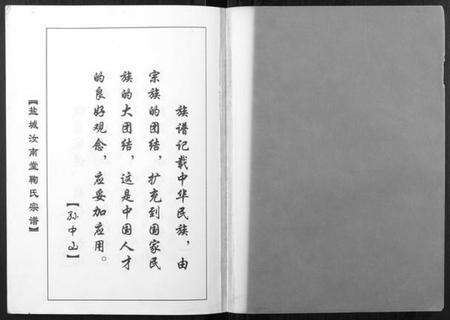 族谱记载中华民族，由
宗族的团结，扩充到国家民
族的大团结，这是中国人才
的良好观念，应妥加应用。
【孙中山】
【盐城汝南堂鞠氏宗谱】